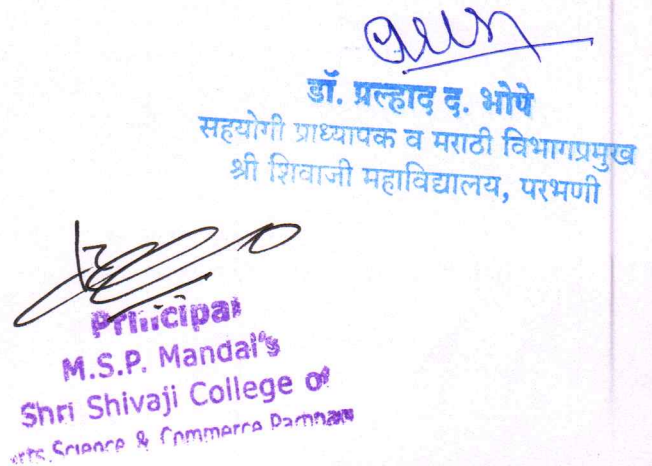 डॉ. प्रल्हाद द. भोपे
सहयोगी प्राध्यापक व मराठी विभागप्रमुख
श्री शिवाजी महाविद्यालय, परभणी
Principal
M.S.P. Mandal's
Shri Shivaji College of
Arts, Science & Commerce Parbhani